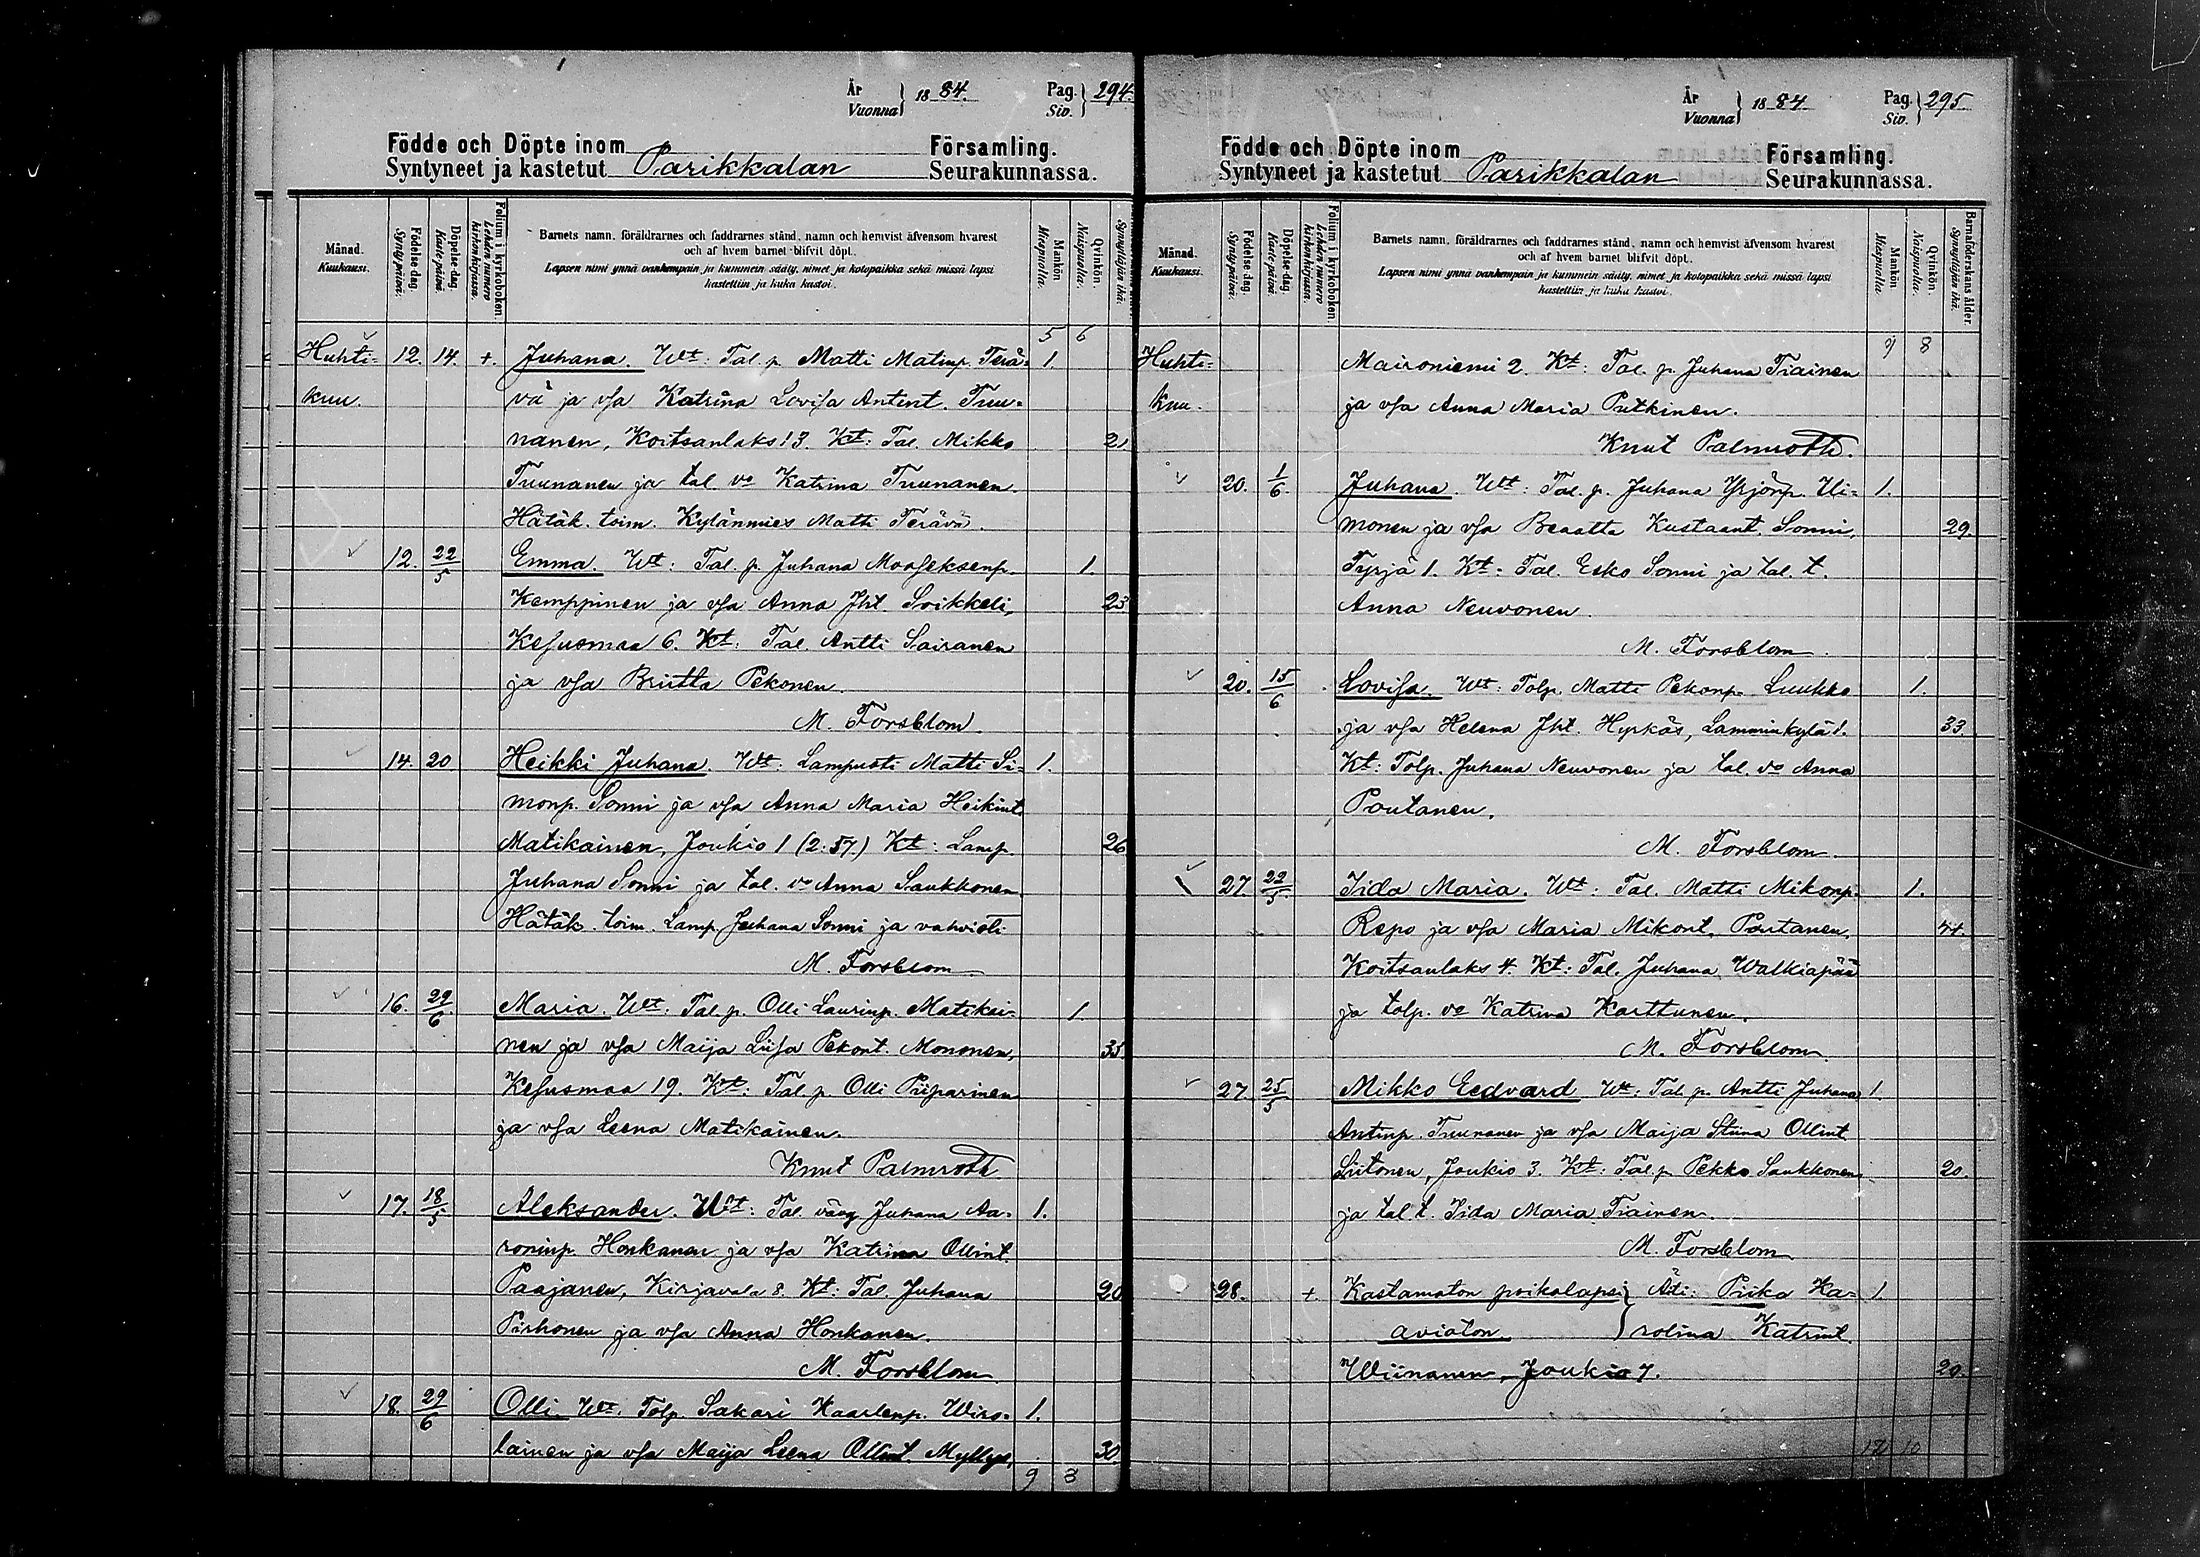 År
Vuonna } 1884.
Pag.
Siv. } 294.
Födde och Döpte inom
Syntyneet ja kastetut Parikkalan
Församling.
Seurakunnassa.
Månad.
Kuukausi.
Födelse-dag.
Syntypäivä.
Döpelse-dag.
Kaste-päivä.
Folium i kyrkoboken.
Lehden numero kirkonkirjassa.
Barnets namn, föräldrarnes och faddrarnes stånd, namn och hemvist äfvensom hvarest
och af hvem barnet blifvit döpt.
Lapsen nimi ynnä vanhempain ja kummein sääty, nimet ja kotopaikka sekä missä lapsi
kastettiin ja kuka kastoi.
Mankön
Miespuolia.
Qvinkön.
Naispuolia.
Synnyttäjän ikä.
5 6
Huhti= 12. 14. +. Juhana. Wt: Tal. p. Matti Matinp. Terä= 1.
kuu. vä ja vsa Katrina Lovisa Antint. Tuu=
nanen, Koitsanlaks 13. Kt: Tal. Mikko 21
Tuunanen ja tal. vo Katrina Tuunanen.
Hätäk. toim. Kylänmies Matti Terävä.
12. 22/5 Emma. Wt: Tal. p. Juhana Mooseksenp. 1.
Kemppinen ja vsa Anna Jht. Soikkeli, 23
Kesusmaa 6. Kt: Tal. Antti Sairanen
ja vsa Briitta Pekonen.
M. Forsblom.
14. 20 Heikki Juhana. Wt: Lampuoti Matti Si= 1.
monp. Sonni ja vsa Anna Maria Heikint.
Matikainen, Joukio 1 (2:57.) Kt: Lamp. 26
Juhana Sonni ja tal. vo Anna Saukkonen
Hätäk. toim. Lamp. Juhana Sonni ja vahvisti
M. Forsblom
16. 29/6. Maria. Wt: Tal. p. Olli Laurinp. Matikai= 1.
nen ja vsa Maija Liisa Pekont. Mononen, 35
Kesusmaa 19. Kt: Tal. p. Olli Piiparinen
ja vsa Leena Matikainen.
Knut Palmroth
17. 18/5. Aleksander. Wt: Tal. väv. Juhana Aa= 1.
roninp. Honkanen ja vsa Katrina Ollint.
Paajanen, Kirjavala 8. Kt: Tal. Juhana 20
Pirhonen ja vsa Anna Honkanen.
M. Forsblom
18. 29/6 Olli. Wt: Tolp. Sakari Kaarlenp. Wiro= 1.
lainen ja vsa Maija Leena Ollint. Myllys, 30
9 8
År
Vuonna } 1884.
Pag.
Siv. } 295
Födde och Döpte inom
Syntyneet ja kastetut Parikkalan
Församling.
Seurakunnassa.
Månad.
Kuukausi.
Födelse-dag.
Syntypäivä.
Döpelse-dag.
Kaste-päivä.
Folium i kyrkoboken.
Lehden numero kirkonkirjassa.
Barnets namn, föräldrarnes och faddrarnes stånd, namn och hemvist äfvensom hvarest
och af hvem barnet blifvit döpt.
Lapsen nimi ynnä vanhempain ja kummein sääty, nimet ja kotopaikka sekä missä lapsi
kastettiin ja kuka kastoi.
Mankön
Miespuolia.
Qvinkön.
Naispuolia.
Barnaföderskans ålder.
Synnyttäjän ikä.
9 8
Huhti= Maironiemi 2. Kt: Tal. p. Juhana Tiainen
kuu. ja vsa Anna Maria Putkinen.
Knut Palmroth.
20. 1/6. Juhana. Wt: Tal. p. Juhana Yrjönp. Ili= 1.
monen ja vsa Beaatta Kustaant. Sonni, 29.
Tyrjä 1. Kt: Tal. Esko Sonni ja tal. t.
Anna Neuvonen
M. Forsblom.
20. 15/6 Lovisa. Wt: Tolp. Matti Pekonp. Luukko 1.
ja vsa Helena Jht. Hyrkäs, Lamminkylä 1. 33.
Kt: Tolp. Juhana Neuvonen ja tal. vo Anna
Poutanen.
M. Forsblom.
27. 22/5. Iida Maria. Wt: Tal. Matti Mikonp. 1.
Repo ja vsa Maria Mikont. Poutanen, 44.
Koitsanlaks 4. Kt: Tal. Juhana Walkiapää
ja tolp. vo Katrina Karttunen.
M. Forsblom.
27. 25/5. Mikko Eedvard. Wt: Tal. p. Antti Juhana 1.
Antinp. Tuunanen ja vsa Maija Stiina Ollint.
Liitonen, Joukio 3. Kt: Tal. p. Pekka Saukkonen 20.
ja tal. t. Iida Maria Tiainen.
M. Forsblom
28. +. Kastamaton poikalapsi } Äiti: Piika Ka= 1.
aviöton } rolina Katrint.
Wiinanen, Joukio 7. 20.
12 10